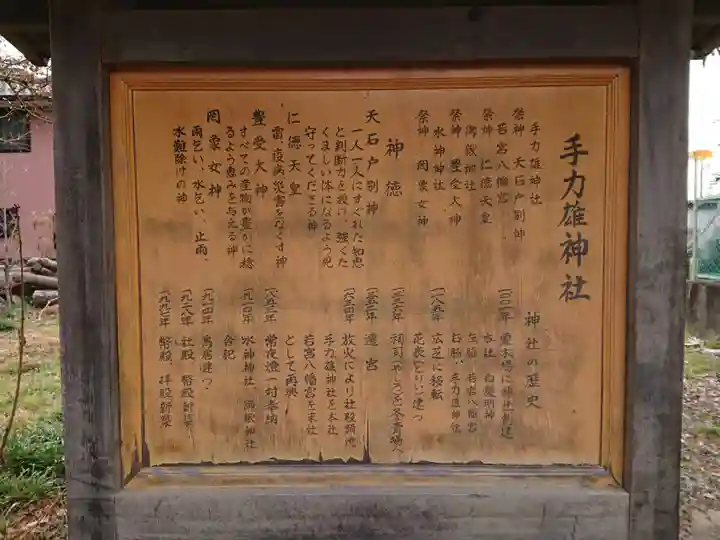 手力雄神社
手力雄神社
祭神 天石戸別神
若宮八幡宮
祭神 仁徳天皇
祭神 豊受大神
水神神社
祭神 罔象女神
神徳
天石戸別神
一人一人にすぐれた知恵
と判断力を授け、強くた
くましい体になるよう見
守ってくださる神
仁徳天皇
雷、疫病災害をなくす神
豊受大神
すべての産物が豊かに稔
るよう恵みを与える神
罔象女神
雨乞い、水乞い、止雨、
水難除けの神
神社の歴史
左脇 若宮八幡宮
右脇 手力雄神社
広芝に移転
花表(とりい)建つ
遷宮
放火により社殿類焼
手力雄神社を本社
若宮八幡宮を末社
として再興
常夜燈一対奉納
水神神社、満飯神社
合祀
一九一四年 鳥居建つ
一九二八年 社殿 幣殿新築
一九九七年 幣殿、拝殿新築